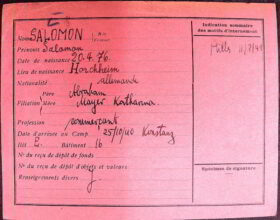 Nom SALOMON
Prénoms Salaman
Date de naissance 20.4.76.
Lieu de naissance Horchheim
Nationalité allemande
Filiation
Père Abraham
Mère Mayer Katharina
Profession commerçant
Date d'arrivée au Camp 25/10/40 Konstanz
Ilôt E. Bâtiment 16
N° du reçu de dépôt de fonds
N° du reçu de dépôt d'objets et valeurs
Renseignements divers J.
Indication sommaire
des motifs d'internement
Mills 11/3/41
Spécimen de signature